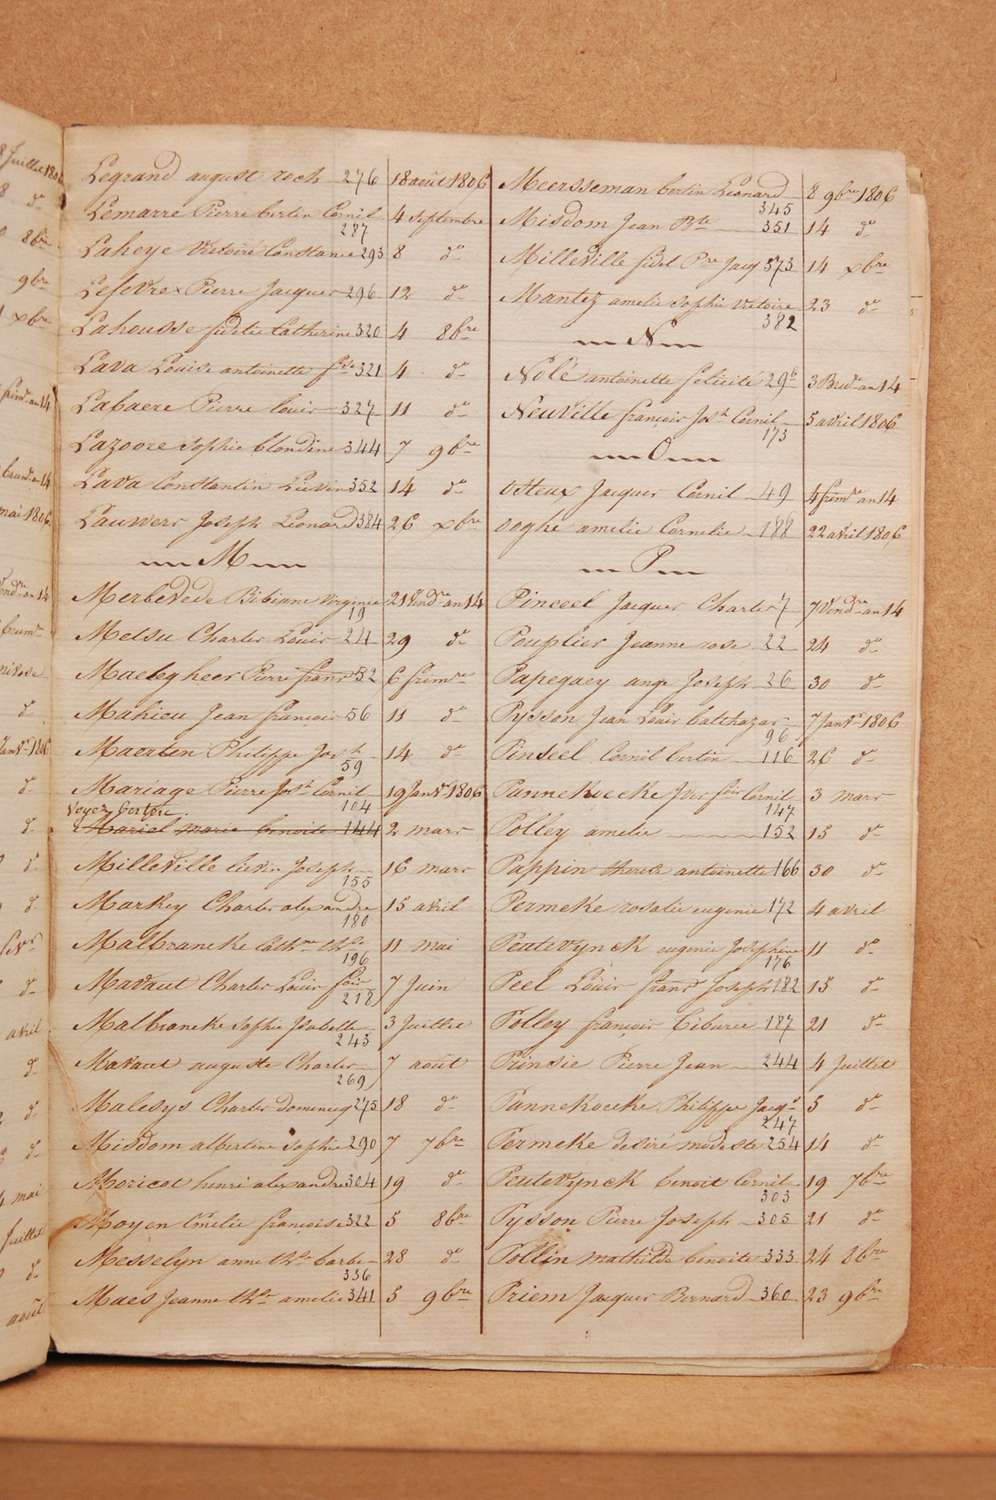 Legrand august roch 276 18 août 1806
Lemarre Pierre bertin Cornil 287 4 septembre
Laheye Victoire Constance 293 8 do
Lefevre x Pierre Jacques 296 12 do
Lahousse fidelie Catherine 320 4 8bre
Lava Louise antoinette fse 321 4 do
Labaere Pierre louis 327 11 do
Lazoore Sophie blondine 344 7 9bre
Lava Constantin Lievin 352 14 do
Lauwers Joseph Léonard 384 26 xbre
M
Merbevede Bibiane Virginie 19 21 Vendre an 14
Metsu Charles Louis 24 29 do
Maebegheer Pierre franss 52 6 frimre
Mahieu Jean francois 56 11 do
Maerten Philippe Josh 59 14 do
Mariage Pierre Josh Cornil 104 19 Janvr 1806
Voyez bertin
Mariel marie benoite 144 2 mars
Milleville lievin Joseph 155 16 mars
Markey Charles alexandre 180 15 avril
Malbrancke Cathne thse 196 11 mai
Mavaut Charles Louis fois 218 7 Juin
Malbrancke Sophie Isabelle 243 3 Juillet
Mavaut auguste Charles 269 7 août
Malesys Charles dominiq 275 18 do
Misdom albertine Sophie 290 7 7bre
Moricot henri alexandre 304 19 do
Moyen Emelie francoise 322 5 8bre
Messelyn anne thse barbe 336 28 do
Maes Jeanne thse amelie 341 5 9bre
Meersseman bertin Léonard 345 8 9bre 1806
Misdom Jean Bte 351 14 do
Milleville fidel Pre Jacq 373 14 xbre
Mantez amelie Sophie Victoire 382 23 do
N
Nolé antoinette felicité 296 3 Brure an 14
Neuville françois Josh Cornil 173 5 avril 1806
O
osteux Jacques Cornil 49 4 frimre an 14
ooghe amelie Cornelie 188 22 avril 1806
P
Pinceel Jacques Charles 7 7 Vendre an 14
Pouplier Jeanne rose 22 24 do
Papegaey ange Joseph 26 30 do
Pysson Jean Louis balthazar 96 7 Janvr 1806
Pinseel Cornil bertin 116 26 do
Pannekoecke Jean fois Cornil 147 3 mars
Polley amelie 152 15 do
Pappin therese antoinette 166 30 do
Permeke rosalie eugenie 172 4 avril
Peutevynck eugenie Josephine 176 11 do
Peel Louis franss Joseph 182 15 do
Polley françois Ciburce 187 21 do
Prinsie Pierre Jean 244 4 Juillet
Pannekoecke Philippe Jacqs 247 5 do
Permeke desiré modeste 254 14 do
Peutevynck benoit Cornil 303 19 7bre
Pysson Pierre Joseph 305 21 do
Pollin mathilde benoite 333 24 8bre
Priem Jacques Bernard 360 23 9bre